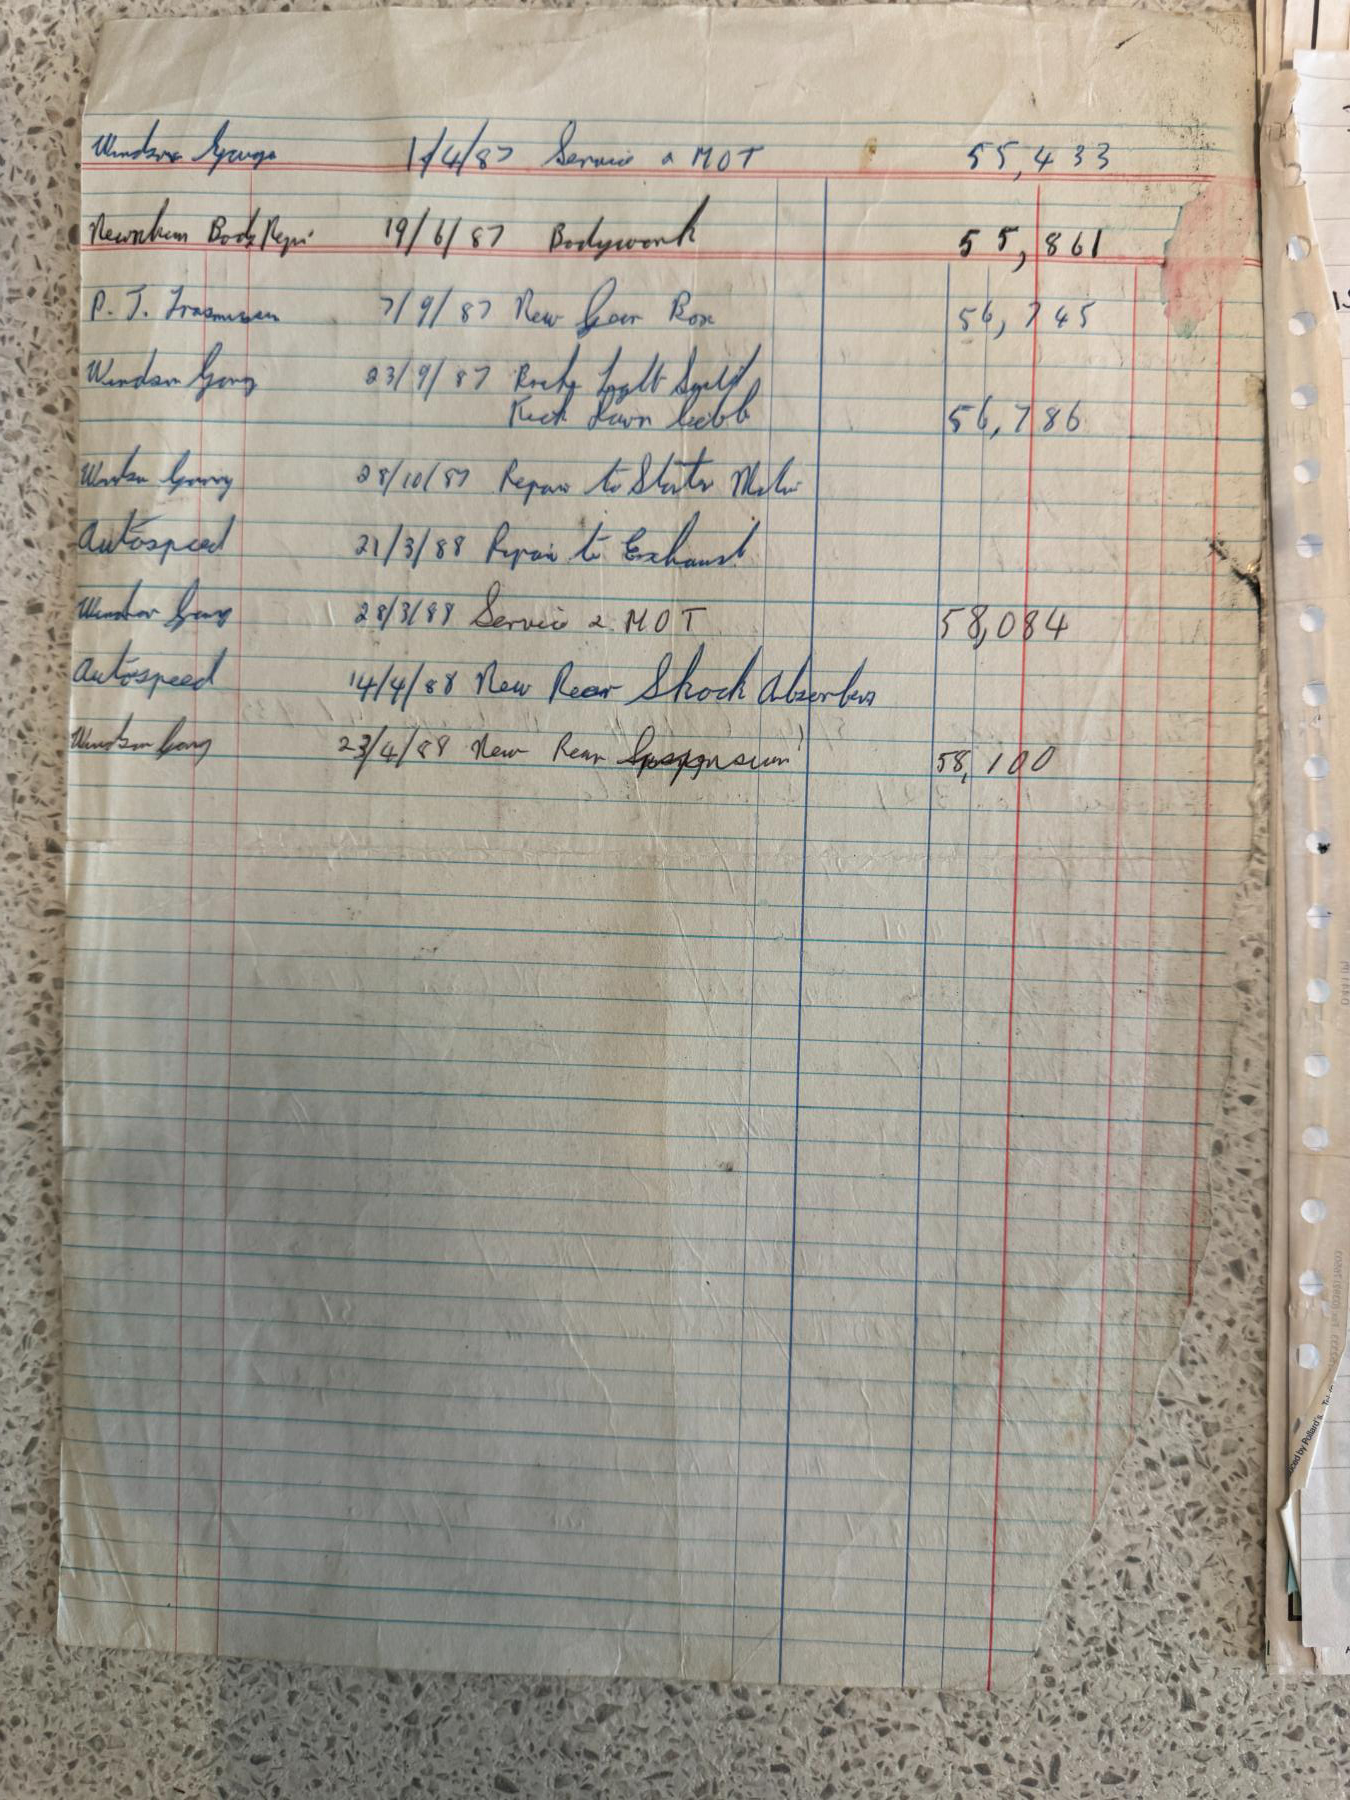 Windsor Garage 1/4/87 Service & MOT 55,433
Newnham Body Repair 19/6/87 Bodywork 55,861
P. J. 7/9/87 New Gear Box 56,745
Windsor Garage 23/9/87 Light
Kick Down 56,786
Windsor Garage 28/10/87 Repair to Starter Motor
Autospeed 21/3/88 Repair to Exhaust
Windsor Garage 28/3/88 Service & MOT 58,084
Autospeed 14/4/88 New Rear Shock Absorbers
Windsor Garage 23/4/88 New Rear Suspension 58,100